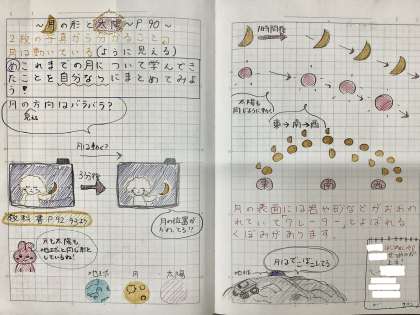 ～月の形と太陽～P.90～
2枚の写真からわかることの
月は動いている(ように見える)
めこれまでの月について学んでき
たことを自分なりにまとめてみよ
う!
月の方向はバラバラ?
月は動く?
3分後
教科書P.92
月の位置が
かわってる!!
月も太陽も
地球と同じ形を
しているね!
地球
月
太陽
1時間後
太陽も
同じように動く
東→南→西
東
南
西
月の表面には岩や砂などがおおわ
れていて「クレーター」とよばれる
くぼみがあります。
月はでこぼこしてる
地球